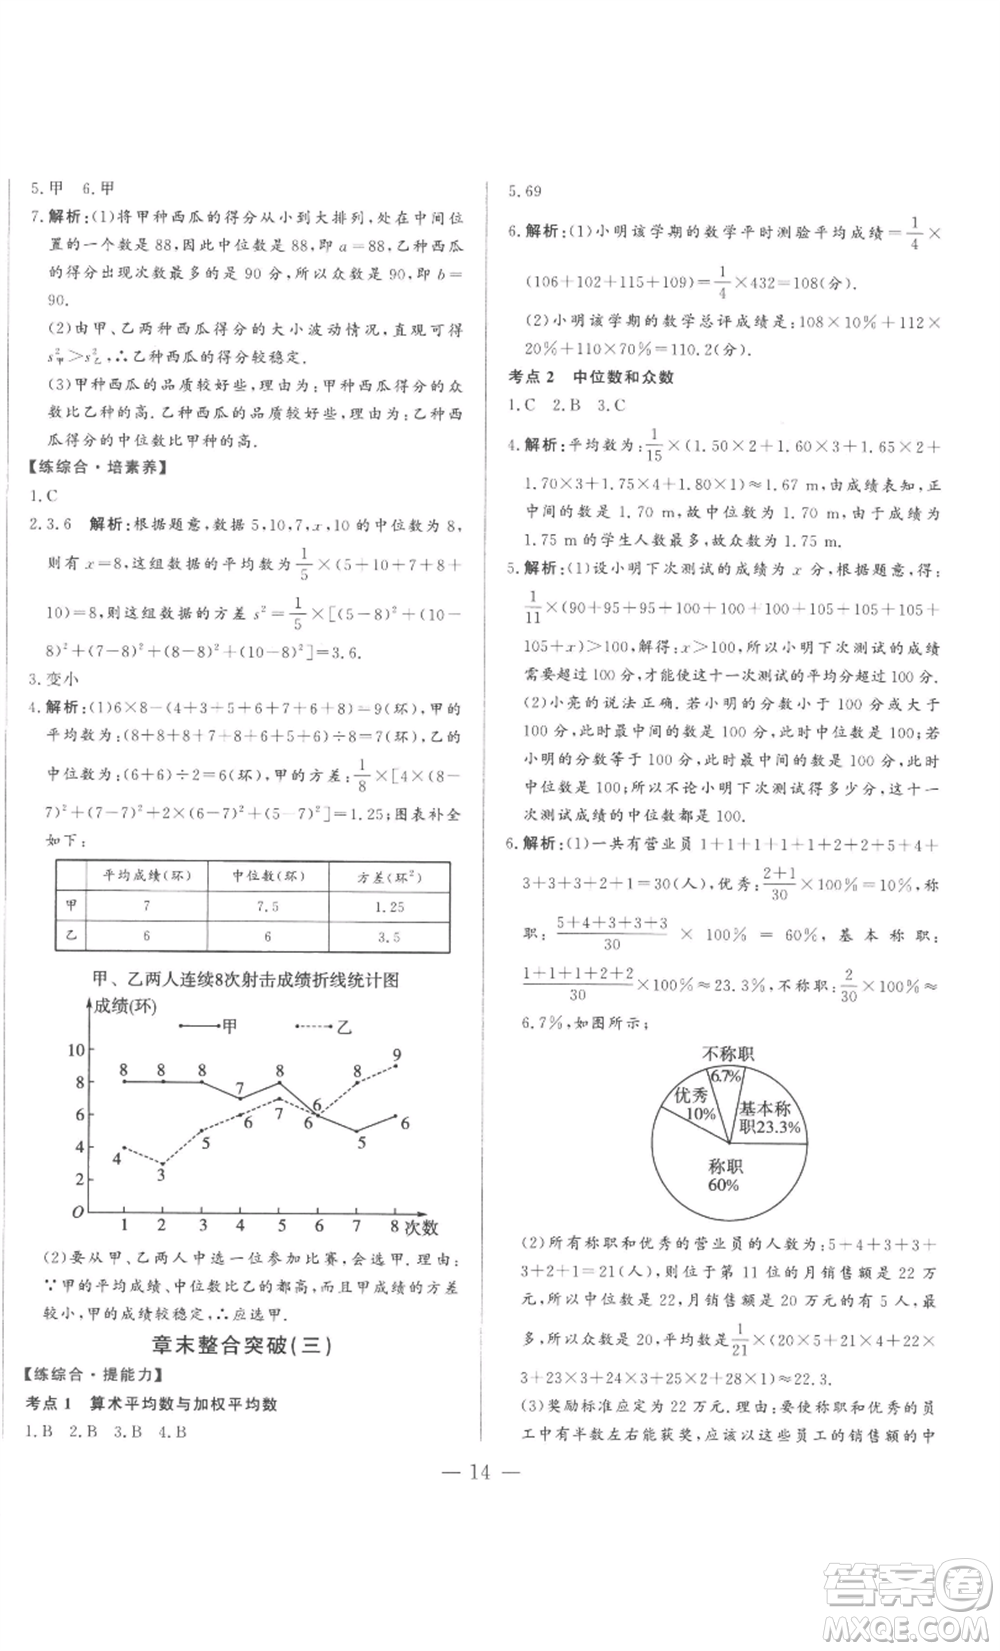 5.甲 6.甲
7.解析:(1)将甲种西瓜的得分从小到大排列,处在中间位
置的一个数是 88,因此中位数是 88,即 a=88,乙种西瓜
的得分出现次数最多的是 90 分,所以众数是 90,即 b=
90.
(2)由甲、乙两种西瓜得分的大小波动情况,直观可得
s²甲>s²乙,∴乙种西瓜的得分较稳定.
(3)甲种西瓜的品质较好些,理由为:甲种西瓜得分的众
数比乙种的高.乙种西瓜的品质较好些,理由为:乙种西
瓜得分的中位数比甲种的高.
【练综合·培素养】
1.C
2.3.6 解析:根据题意,数据 5,10,7,x,10 的中位数为 8,
则有 x=8,这组数据的平均数为 1/5×(5+7+8+
10+10)=8,则这组数据的方差 s²=1/5×[(5-8)²+(7-
8)²+(8-8)²+(10-8)²+(10-8)²]=3.6.
3.变小
4.解析:(1)6×8-(4+3+5+6+7+6+8)=9(环),甲的
平均数为:(8+8+8+7+8+6+5+6)÷8=7(环),乙的
中位数为:(6+6)÷2=6(环),甲的方差:1/8×[4×(8-
7)²+(7-7)²+2×(6-7)²+(5-7)²]=1.25;图表补全
如下:
平均成绩(环) 中位数(环) 方差(环²)
甲 7 7.5 1.25
乙 6 6 3.5
甲、乙两人连续8次射击成绩折线统计图
成绩(环)
甲 乙
10
8 8 8 8 7 8 6 8 9
6 6 7 6
4 4 3 5 5
2
O 1 2 3 4 5 6 7 8 次数
(2)要从甲、乙两人中选一位参加比赛,会选甲.理由:
∵甲的平均成绩、中位数比乙的都高,而且甲成绩的方差
较小,甲的成绩较稳定,∴应选甲.
章末整合突破(三)
【练综合·提能力】
考点 1 算术平均数与加权平均数
1.B 2.B 3.B 4.B
5.69
6.解析:(1)小明该学期的数学平时测验平均成绩=1/4×
(106+102+115+109)=1/4×432=108(分).
(2)小明该学期的数学总评成绩是:108×10%+112×
20%+110×70%=110.2(分).
考点 2 中位数和众数
1.C 2.B 3.C
4.解析:平均数为:1/15×(1.50×2+1.60×3+1.65×2+
1.70×3+1.75×4+1.80×1)≈1.67 m,由成绩表知,正
中间的成绩为 1.70 m,故中位数为 1.70 m,由于成绩为
1.75 m 的学生人数最多,故众数为 1.75 m.
5.解析:(1)设小明下次测试的成绩为 x 分,根据题意,得:
1/11×(90+95+95+100+100+100+105+105+105+
105+x)>100,解得:x>100,所以小明下次测试的成绩
需要超过 100 分,才能使这十一次测试的平均分超过 100 分.
(2)小亮的说法正确.若小明的分数大于等于 100 分,
此时最中间的数是 100 分,此时中位数是 100 分;若
小明的分数等于小于 100 分,此时最中间的数是 100
分,此时中位数是 100 分.所以不论小明下次测试得多少分,这十一
次测试成绩的中位数都是 100.
6.解析:(1)一共有营业员 1+1+1+1+1+2+2+5+4
+3+3+3+2+1=30(人),优秀:(2+1)/30×100%=10%,称
职:(5+4+3+3+3)/30×100%=60%,基本称职:
(1+1+1+2+2)/30×100%≈23.3%,不称职:2/30×100%≈
6.7%,如图所示;
不称职
6.7%
优秀
10%
基本称
职23.3%
称职
60%
(2)所有称职和优秀的营业员的人数为:5+4+3+3+
3+2+1=21(人),则位于第 11 位的月销售额是 22 万
元,所以中位数是 22 万元,月销售额为 20 万元的有 5 人,
所以众数为 20,平均数是 1/21×(5×20+4×21+3×22+
3×23+3×24+2×25+1×26)≈22.2(万元).
(3)奖励标准应定为 22 万元.理由:要使称职和优秀的员
工中有半数左右能获奖,应该取这些员工的销售额的中
— 14 —
答案圈
MXQE.COM